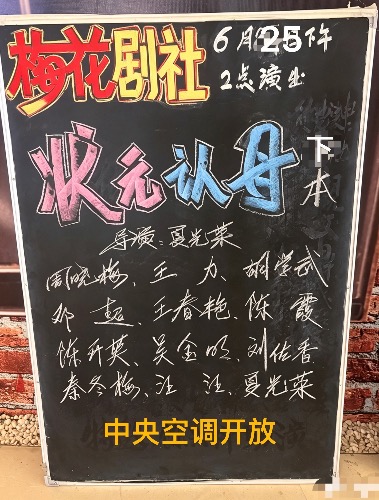 梅花剧社
6月25日下午
2点演出
状元认母
下本
导演：夏光荣
周晓梅、王力、胡学武
邓超、王春艳、陈霞
陈升英、吴金明、刘佐香
秦冬梅、汪汪、夏光荣
中央空调开放